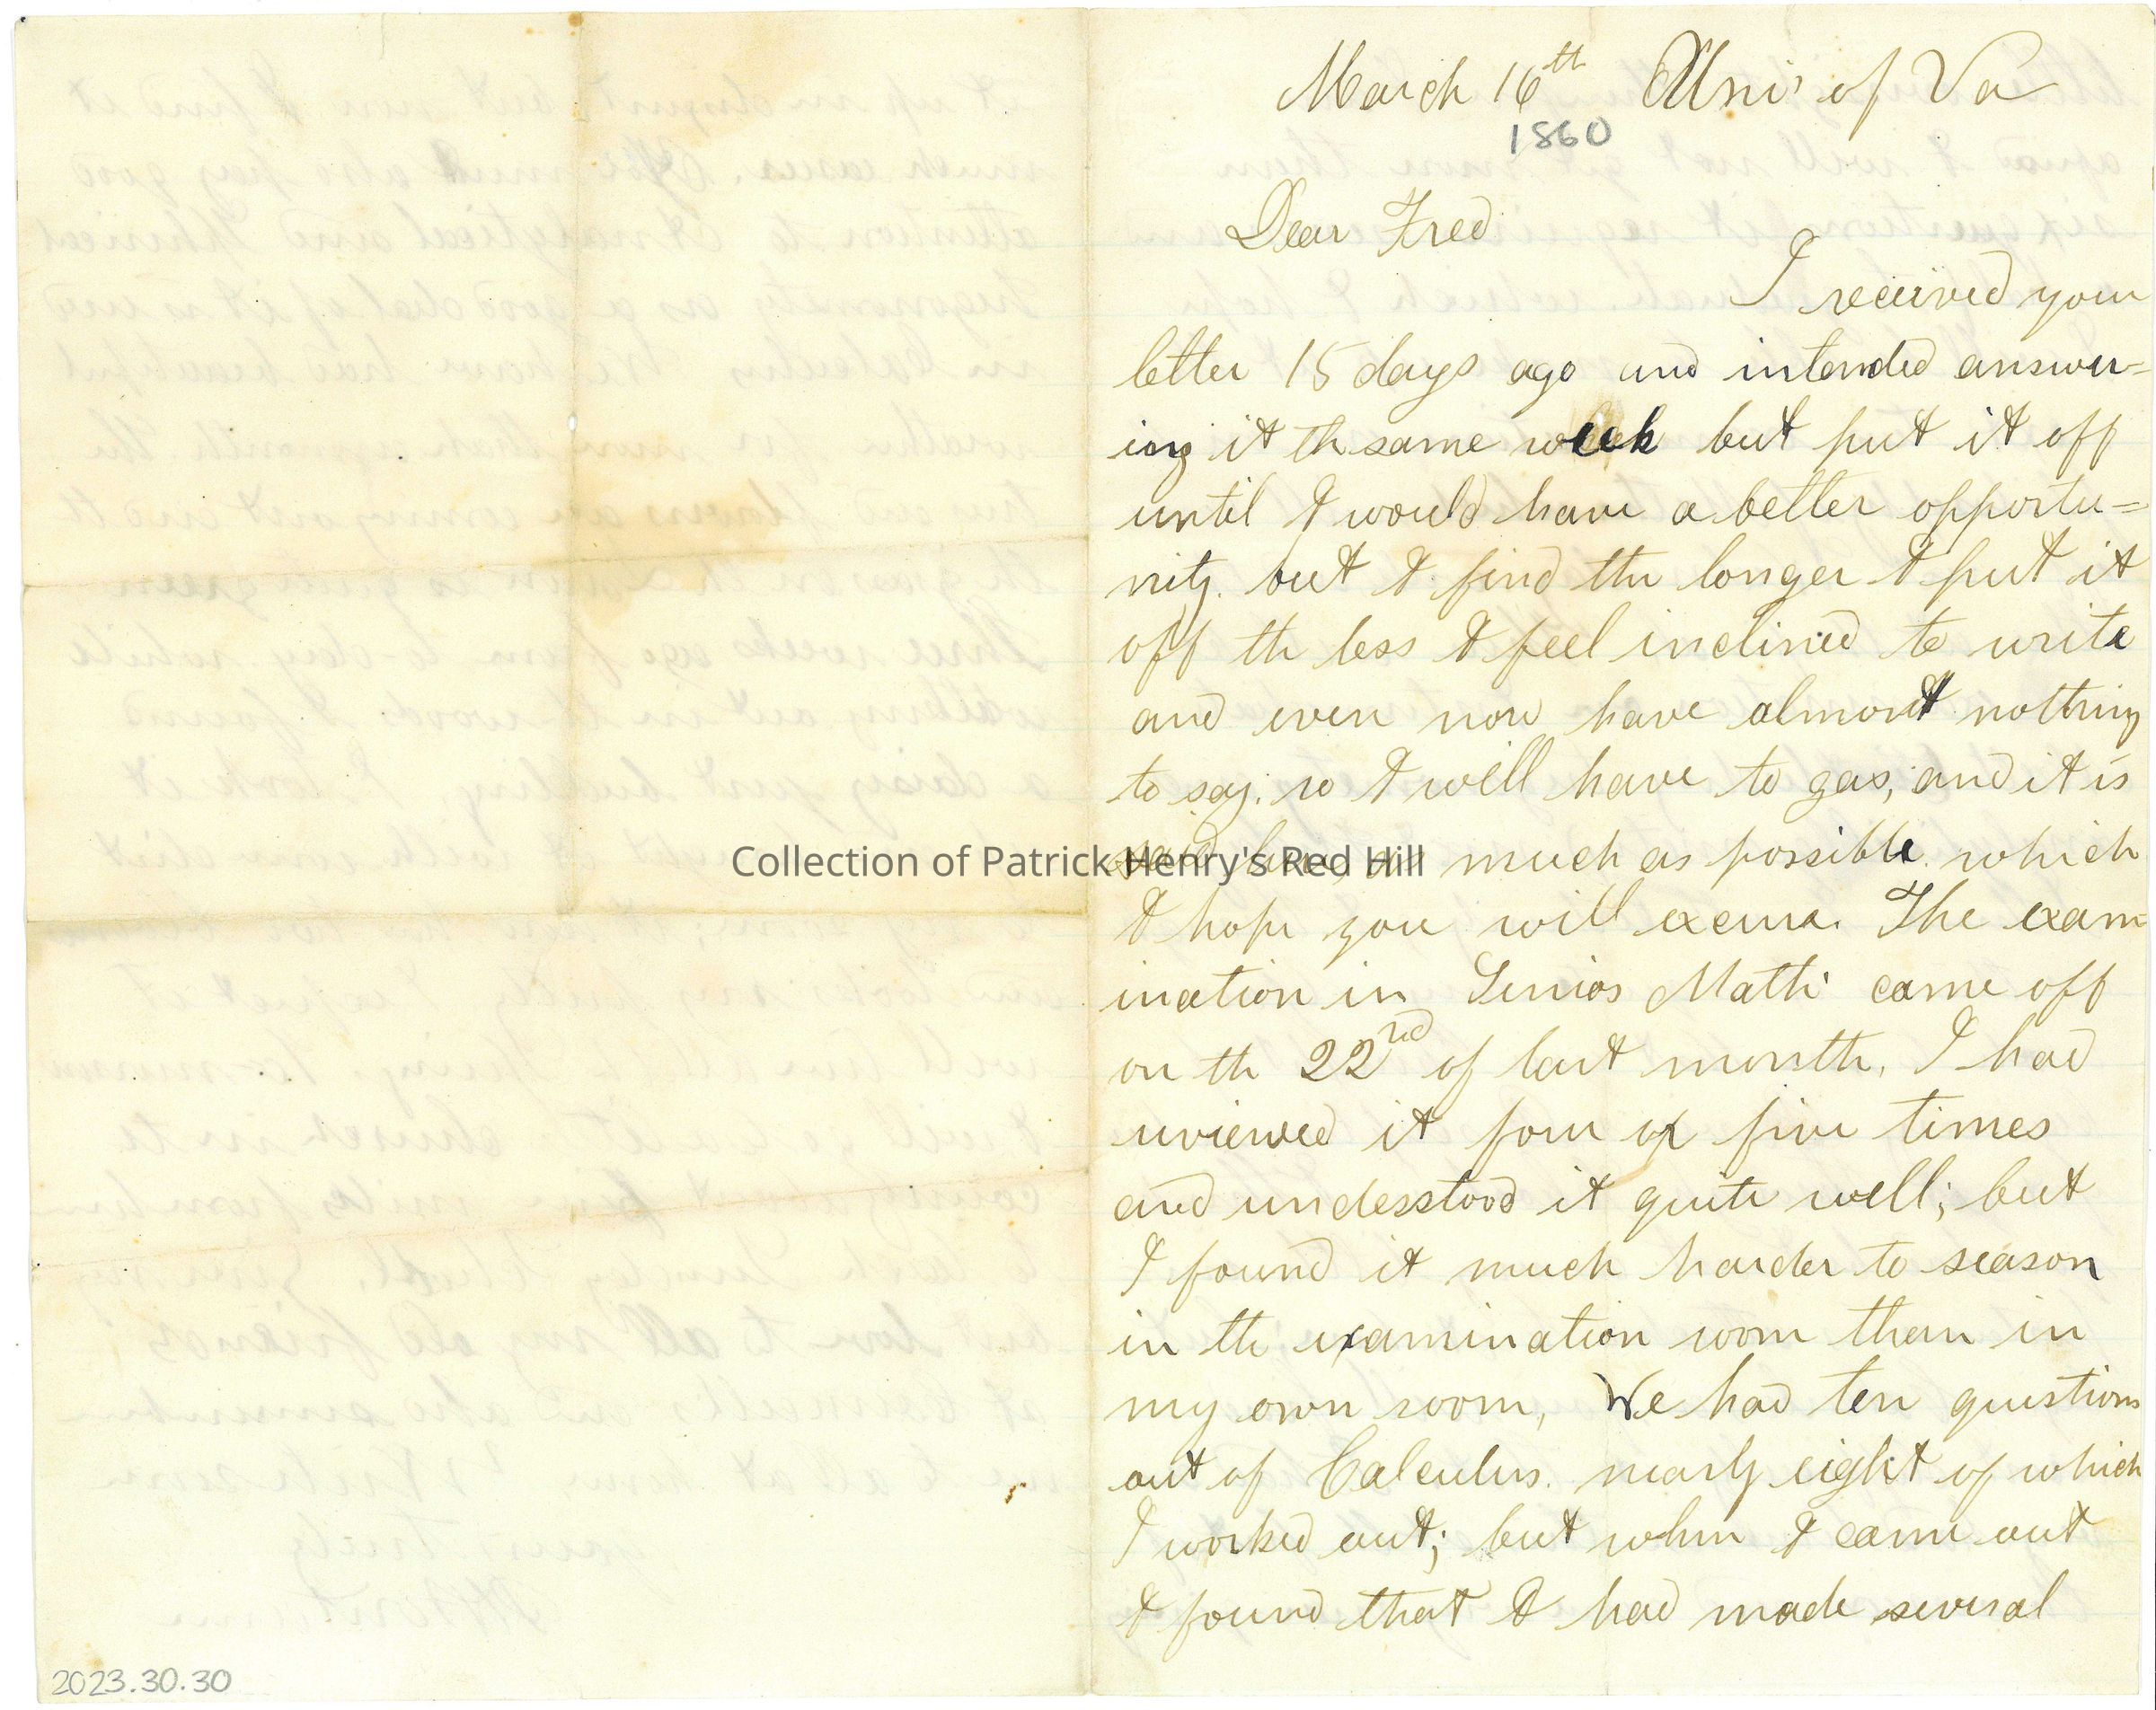 March 16th Uni' of Va
1860
Dear Fred
I received your
letter 15 days ago and intended answer=
ing it th same week but put it off
until I would have a better opportu=
nity. but I find the longer I put it
off th less I feel inclined to write
and even now have almost nothing
to say. so I will have to gas, and it is
said much as possible. which
I hope you will excuse. The exam=
ination in Senior Math' came off
on th 22nd of last month. I had
reviewed it four or five times
and understood it quite well; but
I found it much harder to reason
in th examination room than in
my own room, We had ten questions
out of Calculus. nearly eight of which
I worked out; but when I came out
I found that I had made several
Collection of Patrick Henry's Red Hill
2023.30.30